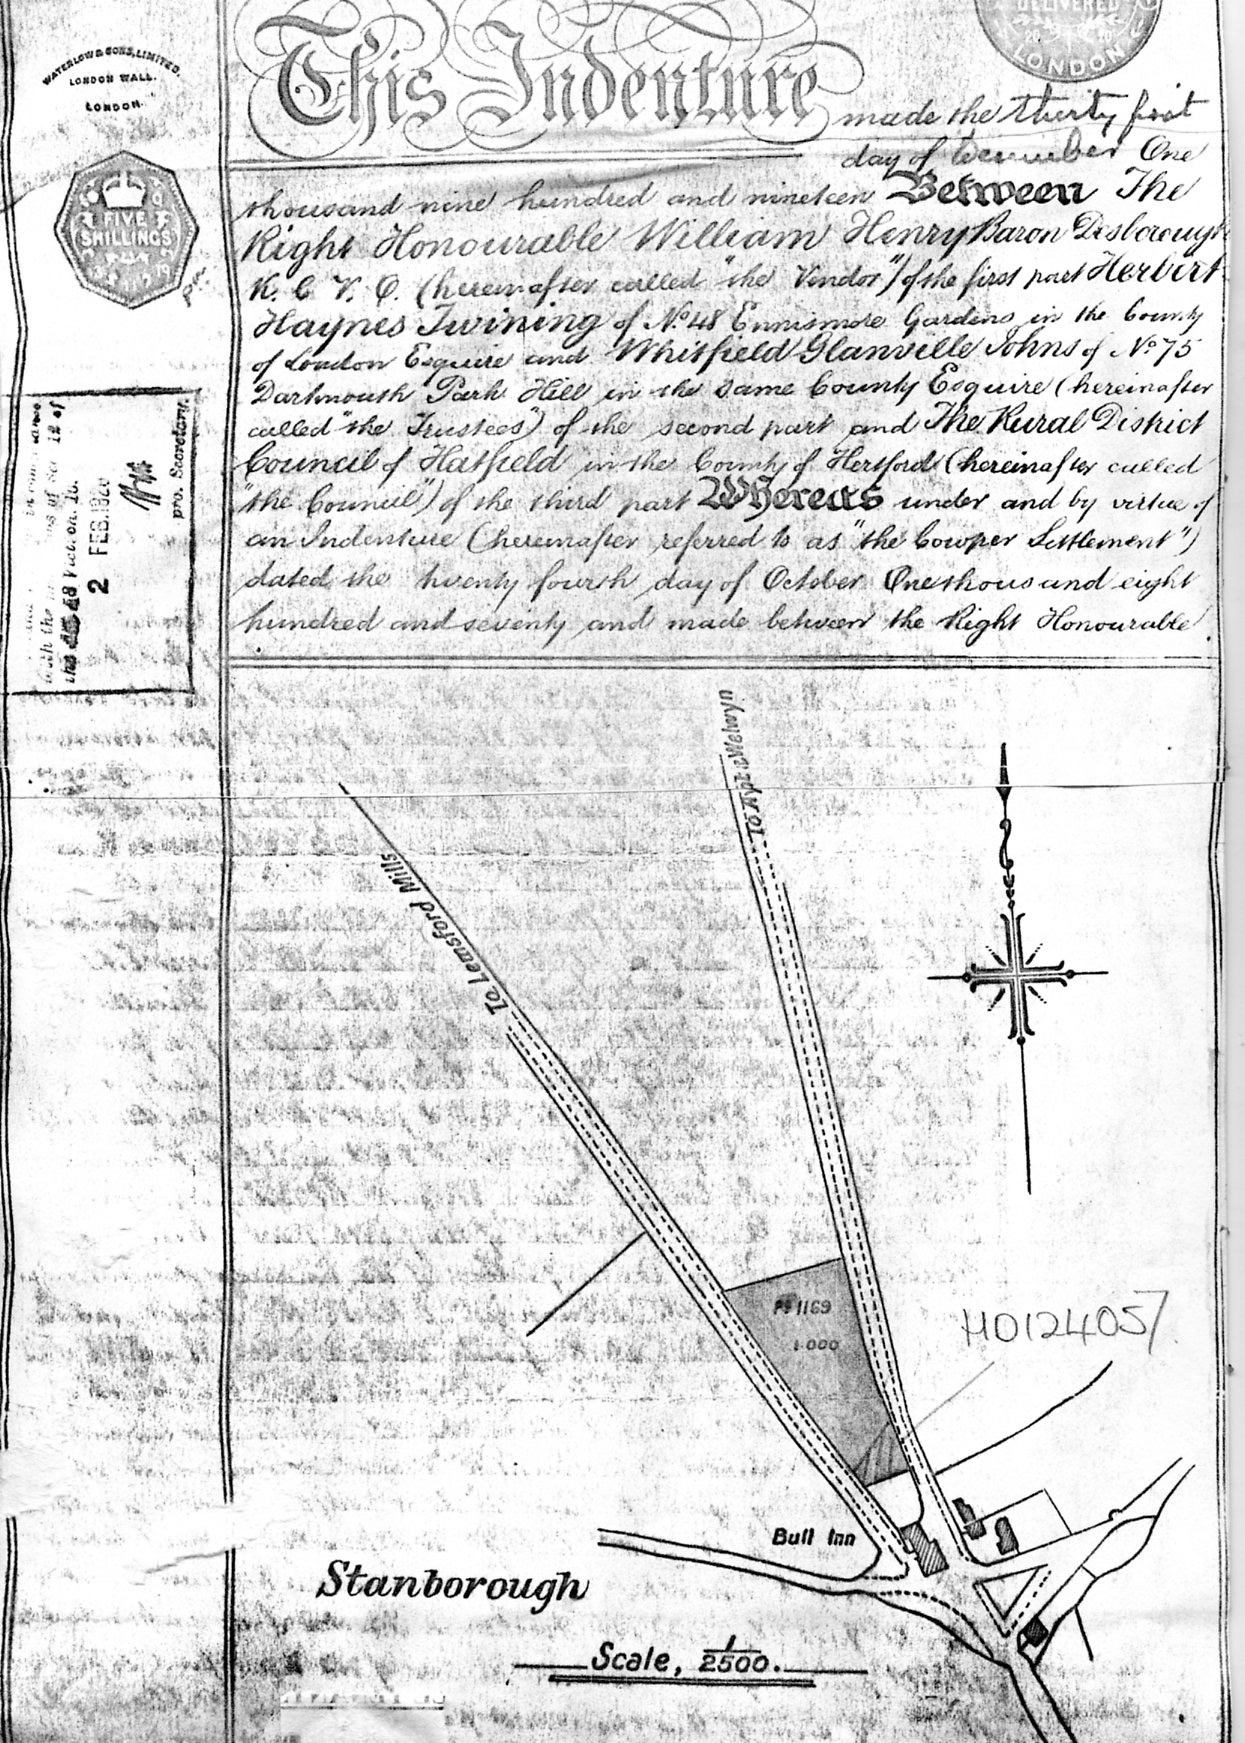 DELIVERED
LONDON
WATERLOW & SONS, LIMITED.
LONDON WALL.
LONDON.
FIVE
SHILLINGS
This Indenture made the thirty first
day of December One
thousand nine hundred and nineteen Between The
Right Honourable William Henry Baron Desborough
K. C. V. O. (hereinafter called "the Vendor") of the first part Herbert
Haynes Twining of No. 48 Ennismore Gardens in the County
of London Esquire and Whitfield Glanville Johns of No. 75
Dartmouth Park Hill in the same County Esquire (hereinafter
called "the Trustees") of the second part and The Rural District
Council of Hatfield in the County of Hertford (hereinafter called
"the Council") of the third part Whereas under and by virtue of
an Indenture (hereinafter referred to as "the Cowper Settlement")
dated the twenty fourth day of October One thousand eight
hundred and seventy and made between the Right Honourable
2 FEB.
pro. Secretary.
To Lemsford Mills
Welwyn
Pt 1169
1.000
HD124057
Bull Inn
Stanborough
Scale, 1/2500.